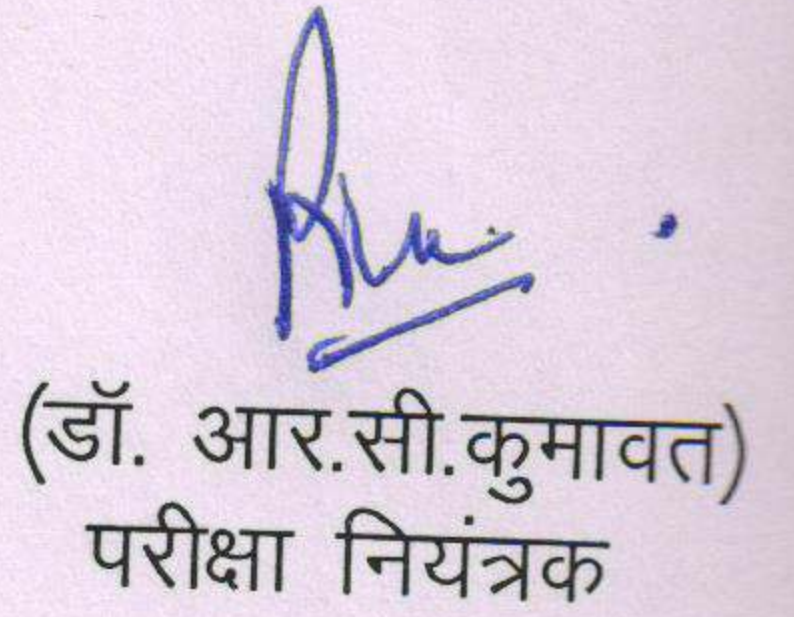 (डॉ. आर.सी.कुमावत)
परीक्षा नियंत्रक